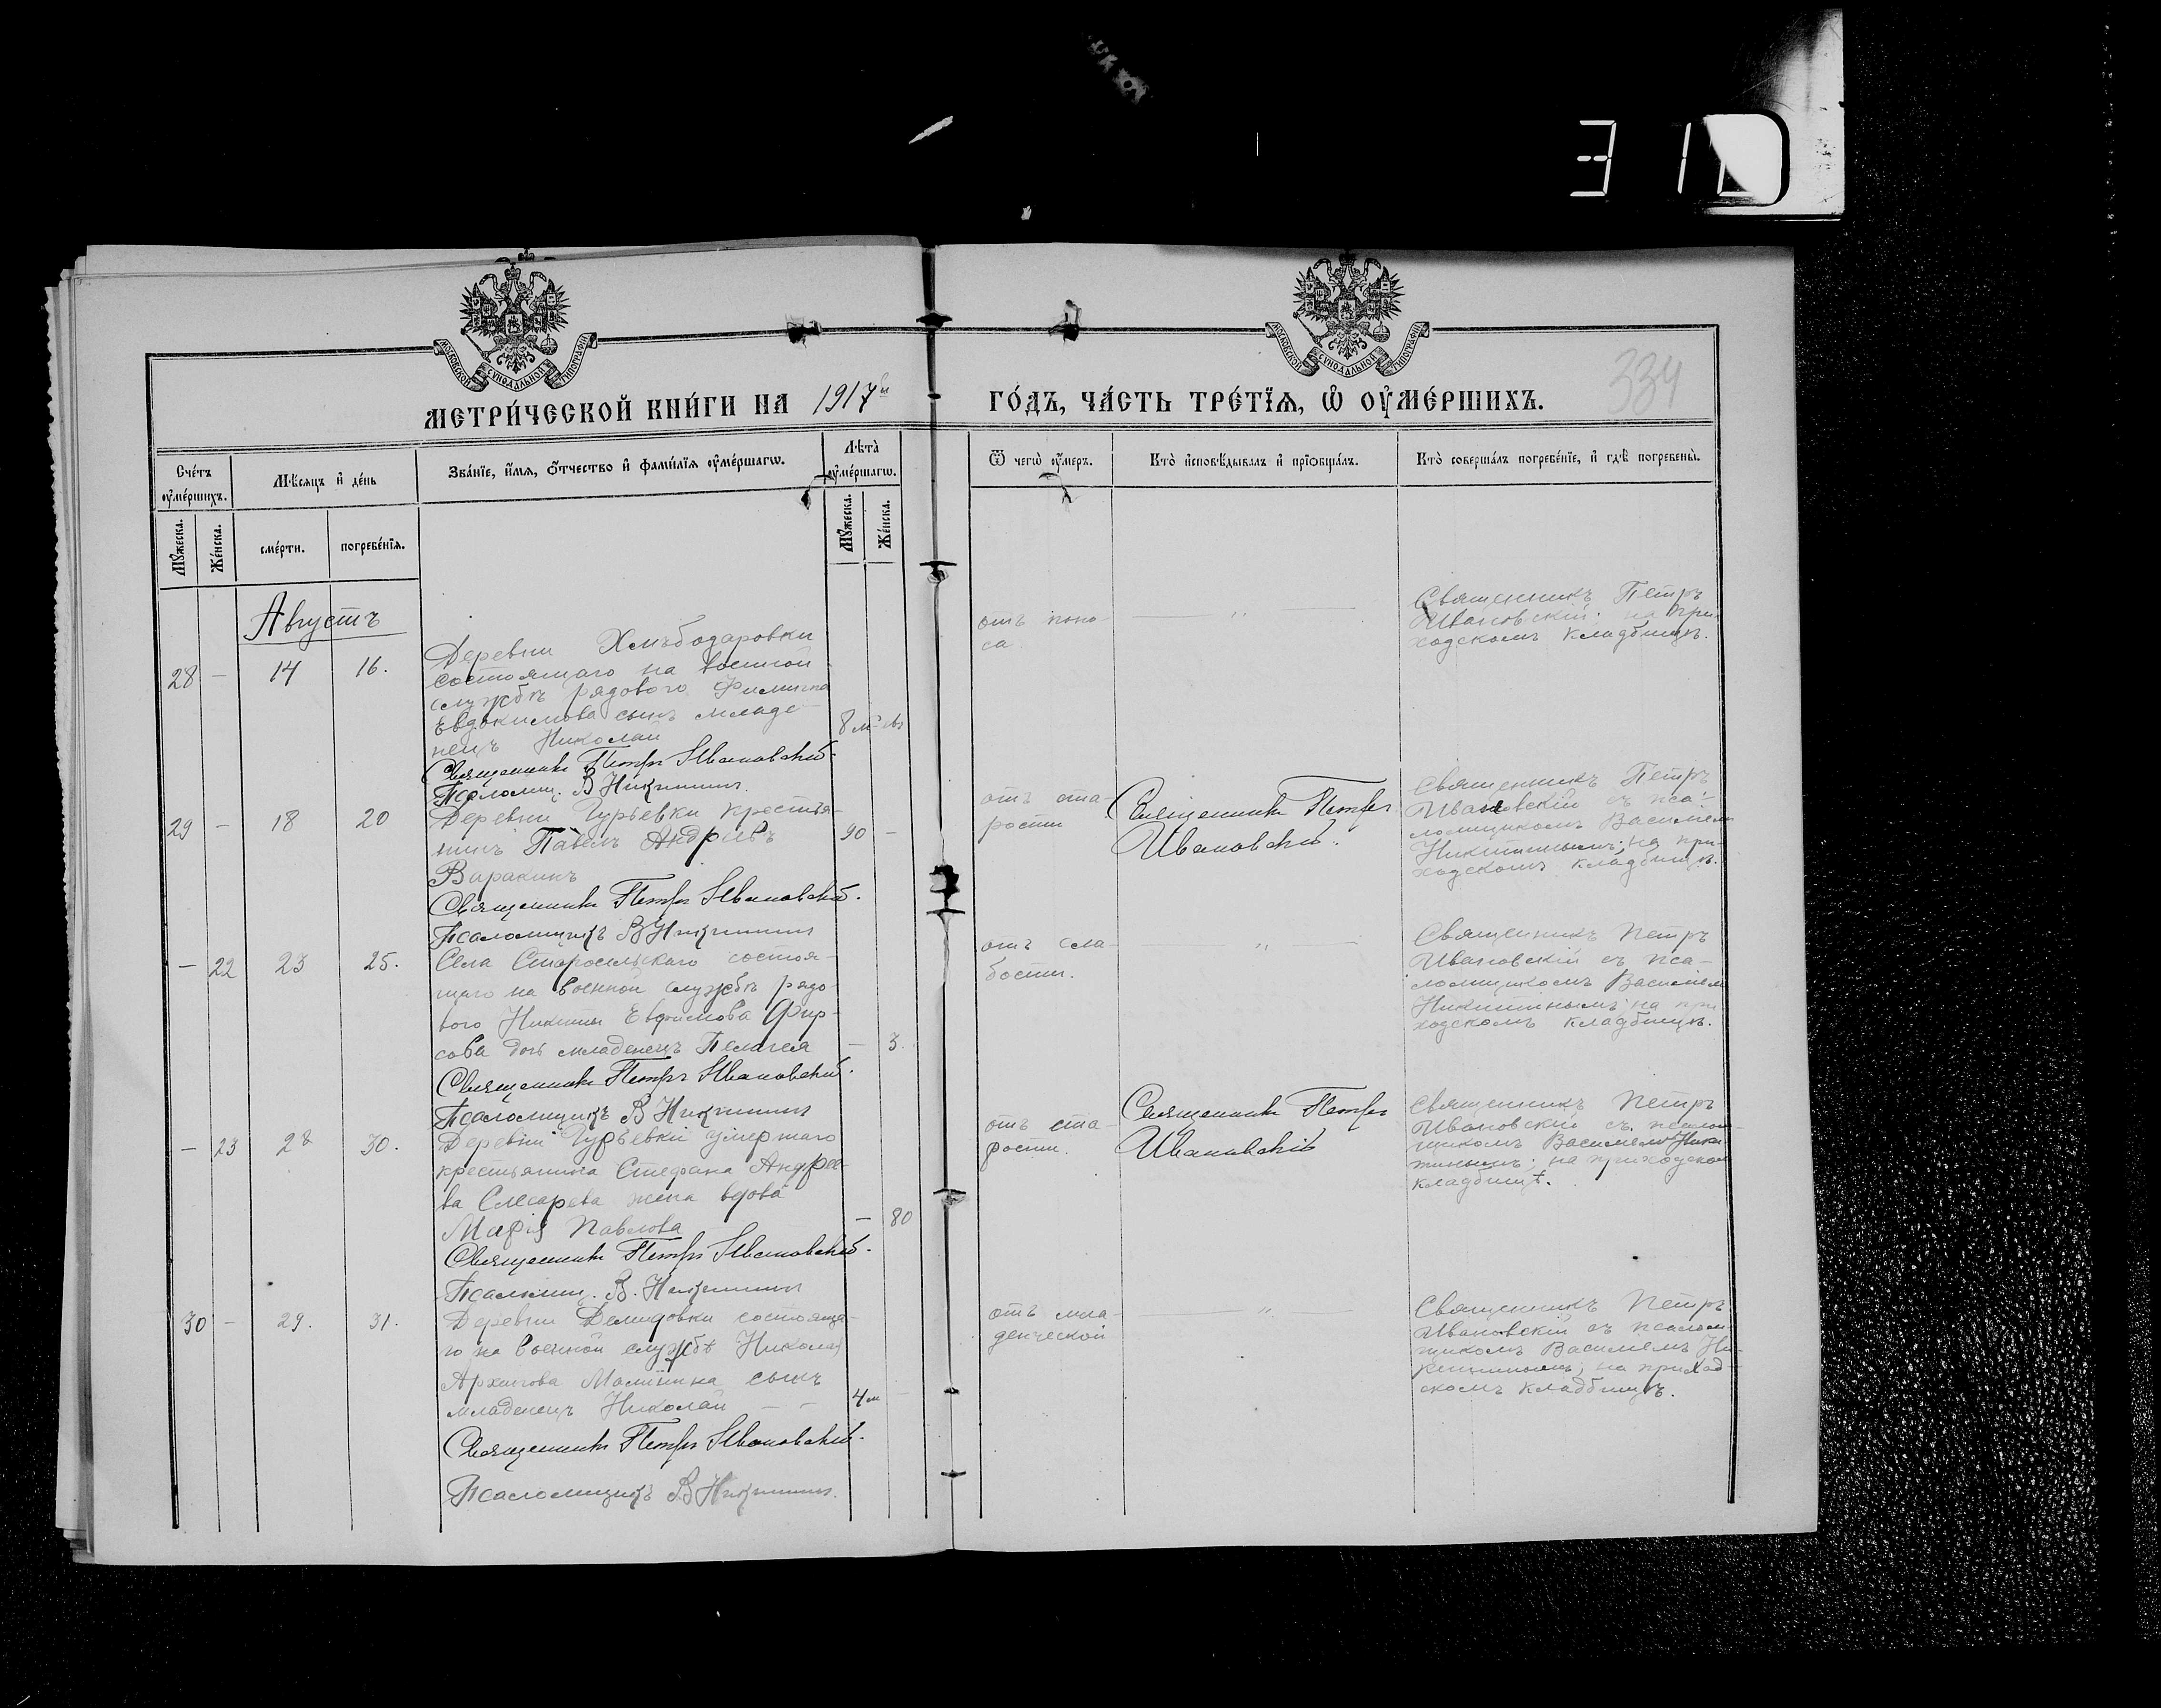 310
334
МОСКОВСКОЙ СУНОДАЛЬНОЙ ТИПОГРАФІИ
МОСКОВСКОЙ СУНОДАЛЬНОЙ ТИПОГРАФІИ
МЕТРИ́ЧЕСКОЙ КНИ́ГИ НА 1917й ГО́ДЪ, ЧА́СТЬ ТРЕ́ТЇѦ, Ѡ҆ ОУ҆МЕ́РШИХЪ.
Сче́тъ оу҆ме́ршихъ.
Мѣ́сѧцъ и҆ де́нь
Зва́нїе, и҆́мѧ, ѻ҆́тчество и҆ фами́лїѧ оу҆ме́ршагѡ.
Лѣ́та̀ оу҆ме́ршагѡ.
Ѿ чегѡ̀ оу҆́меръ.
Кто̀ и҆сповѣ́дывалъ и҆ прїѻбща́лъ.
Кто̀ соверша́лъ погребе́нїе, и҆ гдѣ̀ погребены̀.
Мꙋ́жеска.
Же́нска.
сме́рти.
погребе́нїѧ.
Мꙋ́жеска.
Же́нска.
Августъ
28 – 14 16.
Деревни Хлѣбодаровки
состоящаго на военной
службѣ рядового Филиппа
Евдокимова сынъ младе-
нецъ Николай
8 м-цъ
Священникъ Петръ Ивановскій
Псаломщ. В Никитинъ
отъ поно-
са
– " –
Священникъ Петръ
Ивановскій; на при-
ходскомъ кладбищѣ.
29 – 18 20
Деревни Гурьевки крестья-
нинъ Павелъ Андреевъ
90 –
Виракинъ
Священникъ Петръ Ивановскій.
Псаломщикъ В Никитинъ
отъ ста-
рости
Священникъ Петръ
Ивановскій.
Священникъ Петръ
Ивановскій съ пса-
ломщикомъ Василіемъ
Никитинымъ; на при-
ходскомъ кладбищѣ.
– 22 23 25.
Села Старосельскаго состоя-
щаго на военной службѣ рядо-
вого Никиты Евфимова Фир-
сова дочь младенецъ Пелагея
– 3.
Священникъ Петръ Ивановскій.
Псаломщикъ В Никитинъ
отъ сла-
бости.
– " –
Священникъ Петръ
Ивановскій съ пса-
ломщикомъ Василіемъ
Никитинымъ; на при
ходскомъ кладбищѣ.
– 23 28 30.
Деревни Гурьевки умершаго
крестьянина Стефана Андрее-
ва Слесарева жена вдова
Марія Павлова
– 80
Священникъ Петръ Ивановскій.
Псаломщ. В. Никитинъ
отъ ста-
рости.
Священникъ Петръ
Ивановскій
Священникъ Петръ
Ивановскій съ псалом-
щикомъ Василіемъ Ники
тинымъ; на приходском
кладбищѣ.
30 – 29. 31.
Деревни Демидовки состояща-
го на военной службѣ Николая
Архипова Малинина сынъ
младенецъ Николай – –
4 м –
Священникъ Петръ Ивановскій.
Псаломщикъ В Никитинъ.
отъ мла-
денческой
– " –
Священникъ Петръ
Ивановскій съ псалом-
щикомъ Василіемъ Ни-
китинымъ; на приход-
скомъ кладбищѣ.